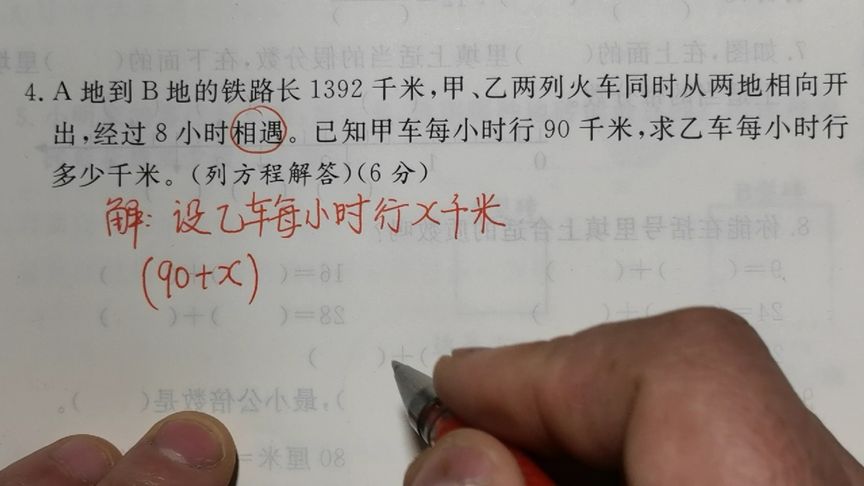 4. A 地到 B 地的铁路长 1392 千米,甲、乙两列火车同时从两地相向开
出,经过 8 小时相遇。已知甲车每小时行 90 千米,求乙车每小时行
多少千米。(列方程解答)(6 分)
解: 设乙车每小时行x千米
(90+x)